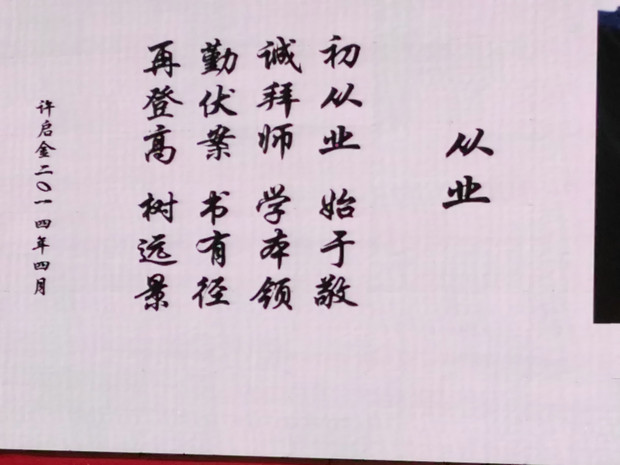 从业
初从业 始于敬
诚拜师 学本领
勤伏案 书有径
再登高 树远景
许启金二〇一四年四月